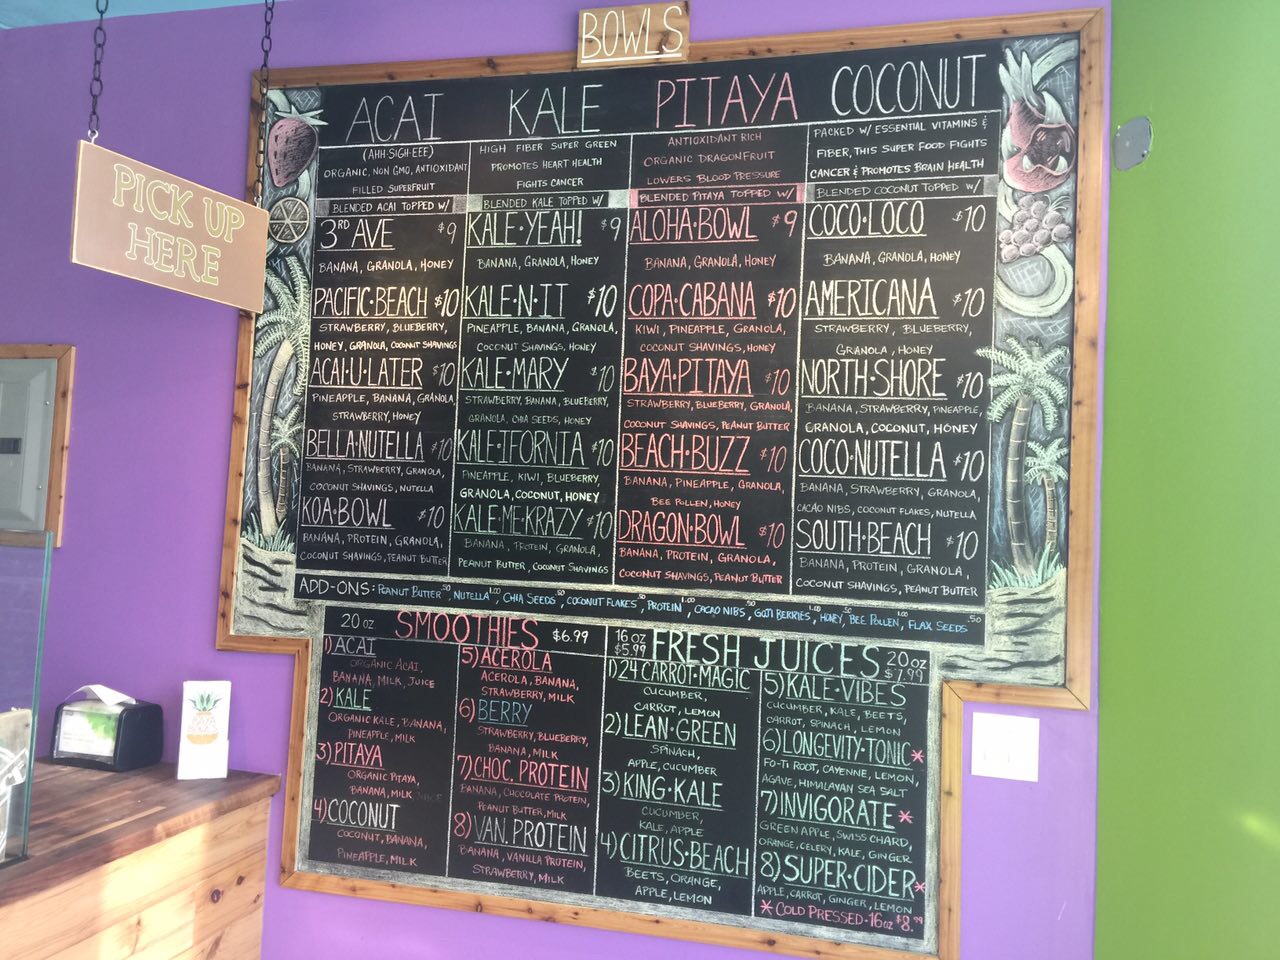 BOWLS
PICK UP
HERE
ACAI
(AHH·SIGH·EEE)
ORGANIC, NON GMO, ANTIOXIDANT
FILLED SUPERFRUIT
BLENDED ACAI TOPPED W/
3RD AVE $9
BANANA, GRANOLA, HONEY
PACIFIC·BEACH $10
STRAWBERRY, BLUEBERRY,
HONEY, GRANOLA, COCONUT SHAVINGS
ACAI·U·LATER $10
PINEAPPLE, BANANA, GRANOLA,
STRAWBERRY, HONEY
BELLA·NUTELLA $10
BANANA, STRAWBERRY, GRANOLA,
COCONUT SHAVINGS, NUTELLA
KOA·BOWL $10
BANANA, PROTEIN, GRANOLA,
COCONUT SHAVINGS, PEANUT BUTTER
KALE
HIGH FIBER SUPER GREEN
PROMOTES HEART HEALTH
FIGHTS CANCER
BLENDED KALE TOPPED W/
KALE·YEAH! $9
BANANA, GRANOLA, HONEY
KALE·N·IT $10
PINEAPPLE, BANANA, GRANOLA,
COCONUT SHAVINGS, HONEY
KALE·MARY $10
STRAWBERRY, BANANA, BLUEBERRY,
GRANOLA, CHIA SEEDS, HONEY
KALE·IFORNIA $10
PINEAPPLE, KIWI, BLUEBERRY,
GRANOLA, COCONUT, HONEY
KALE·ME·KRAZY $10
BANANA, PROTEIN, GRANOLA,
PEANUT BUTTER, COCONUT SHAVINGS
PITAYA
ANTIOXIDANT RICH
ORGANIC DRAGONFRUIT
LOWERS BLOOD PRESSURE
BLENDED PITAYA TOPPED W/
ALOHA·BOWL $9
BANANA, GRANOLA, HONEY
COPA·CABANA $10
KIWI, PINEAPPLE, GRANOLA,
COCONUT SHAVINGS, HONEY
BAYA·PITAYA $10
STRAWBERRY, BLUEBERRY, GRANOLA,
COCONUT SHAVINGS, PEANUT BUTTER
BEACH·BUZZ $10
BANANA, PINEAPPLE, GRANOLA,
BEE POLLEN, HONEY
DRAGON·BOWL $10
BANANA, PROTEIN, GRANOLA,
COCONUT SHAVINGS, PEANUT BUTTER
COCONUT
PACKED W/ ESSENTIAL VITAMINS &
FIBER, THIS SUPER FOOD FIGHTS
CANCER & PROMOTES BRAIN HEALTH
BLENDED COCONUT TOPPED W/
COCO·LOCO $10
BANANA, GRANOLA, HONEY
AMERICANA $10
STRAWBERRY, BLUEBERRY,
GRANOLA, HONEY
NORTH·SHORE $10
BANANA, STRAWBERRY, PINEAPPLE,
GRANOLA, COCONUT, HONEY
COCO·NUTELLA $10
BANANA, STRAWBERRY, GRANOLA,
CACAO NIBS, COCONUT FLAKES, NUTELLA
SOUTH·BEACH $10
BANANA, PROTEIN, GRANOLA,
COCONUT SHAVINGS, PEANUT BUTTER
ADD-ONS: PEANUT BUTTER .50, NUTELLA 1.00, CHIA SEEDS .50, COCONUT FLAKES .50, PROTEIN 1.00, CACAO NIBS .50, GOJI BERRIES 1.00, HONEY .50, BEE POLLEN 1.00, FLAX SEEDS .50
20 oz SMOOTHIES $6.99
1) ACAI
ORGANIC ACAI,
BANANA, MILK, JUICE
2) KALE
ORGANIC KALE, BANANA,
PINEAPPLE, MILK
3) PITAYA
ORGANIC PITAYA,
BANANA, MILK, JUICE
4) COCONUT
COCONUT, BANANA,
PINEAPPLE, MILK
5) ACEROLA
ACEROLA, BANANA,
STRAWBERRY, MILK
6) BERRY
STRAWBERRY, BLUEBERRY,
BANANA, MILK
7) CHOC. PROTEIN
BANANA, CHOCOLATE PROTEIN,
PEANUT BUTTER, MILK
8) VAN. PROTEIN
BANANA, VANILLA PROTEIN,
STRAWBERRY, MILK
16 oz
$5.99
FRESH JUICES
20 oz
$7.99
1) 24 CARROT·MAGIC
CUCUMBER,
CARROT, LEMON
2) LEAN·GREEN
SPINACH,
APPLE, CUCUMBER
3) KING·KALE
CUCUMBER,
KALE, APPLE
4) CITRUS·BEACH
BEETS, ORANGE,
APPLE, LEMON
5) KALE·VIBES
CUCUMBER, KALE, BEETS,
CARROT, SPINACH, LEMON
6) LONGEVITY·TONIC *
FO-TI ROOT, CAYENNE, LEMON,
AGAVE, HIMALAYAN SEA SALT
7) INVIGORATE *
GREEN APPLE, SWISS CHARD,
ORANGE, CELERY, KALE, GINGER
8) SUPER·CIDER *
APPLE, CARROT, GINGER, LEMON
* COLD PRESSED·16oz $8.99